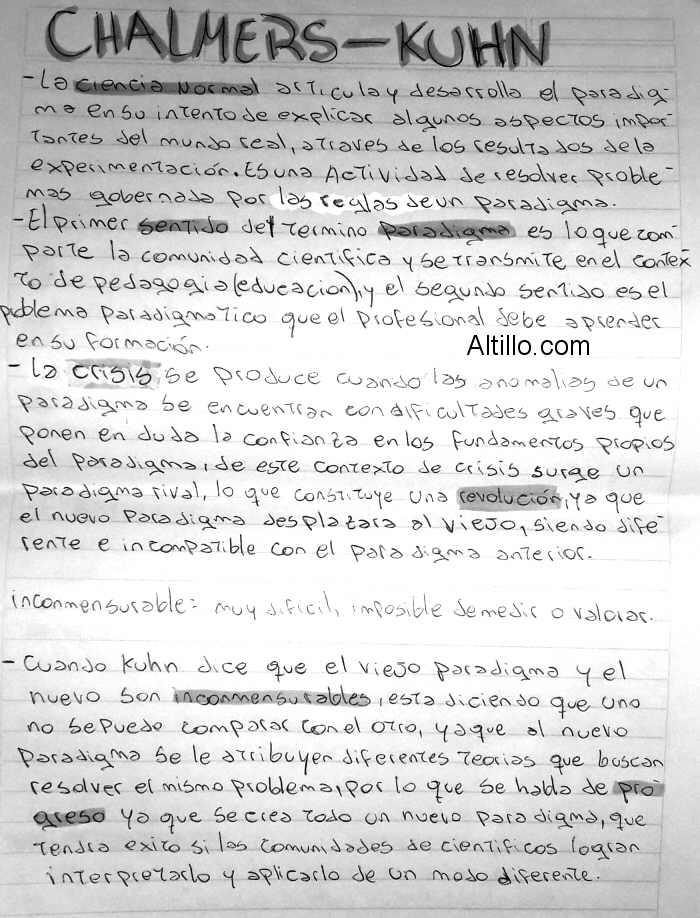 CHALMERS-KUHN
-La ciencia normal articula y desarrolla el paradig-
ma en su intento de explicar algunos aspectos impor-
tantes del mundo real, atraves de los resultados de la
experimentación. Es una Actividad de resolver proble-
mas gobernada por las reglas de un paradigma.
-El primer sentido del termino paradigma es lo que com-
parte la comunidad cientifica y se transmite en el contex-
to de pedagogia (educacion), y el segundo sentido es el
problema paradigmatico que el profesional debe aprender
en su formación.
Altillo.com
- La crisis se produce cuando las anomalias de un
paradigma se encuentran con dificultades graves que
ponen en duda la confianza en los fundamentos propios
del paradigma, de este contexto de crisis surge un
paradigma rival, lo que constituye una revolución, ya que
el nuevo paradigma desplazara al viejo, siendo dife-
rente e incompatible con el paradigma anterior.
inconmensurable: muy dificil, imposible de medir o valorar.
- Cuando Kuhn dice que el viejo paradigma y el
nuevo son inconmensurables, esta diciendo que uno
no se puede comparar con el otro, ya que al nuevo
paradigma se le atribuyen diferentes teorias que buscan
resolver el mismo problema, por lo que se habla de pro-
greso ya que se crea todo un nuevo paradigma, que
tendra exito si las comunidades de cientificos logran
interpretarlo y aplicarlo de un modo diferente.